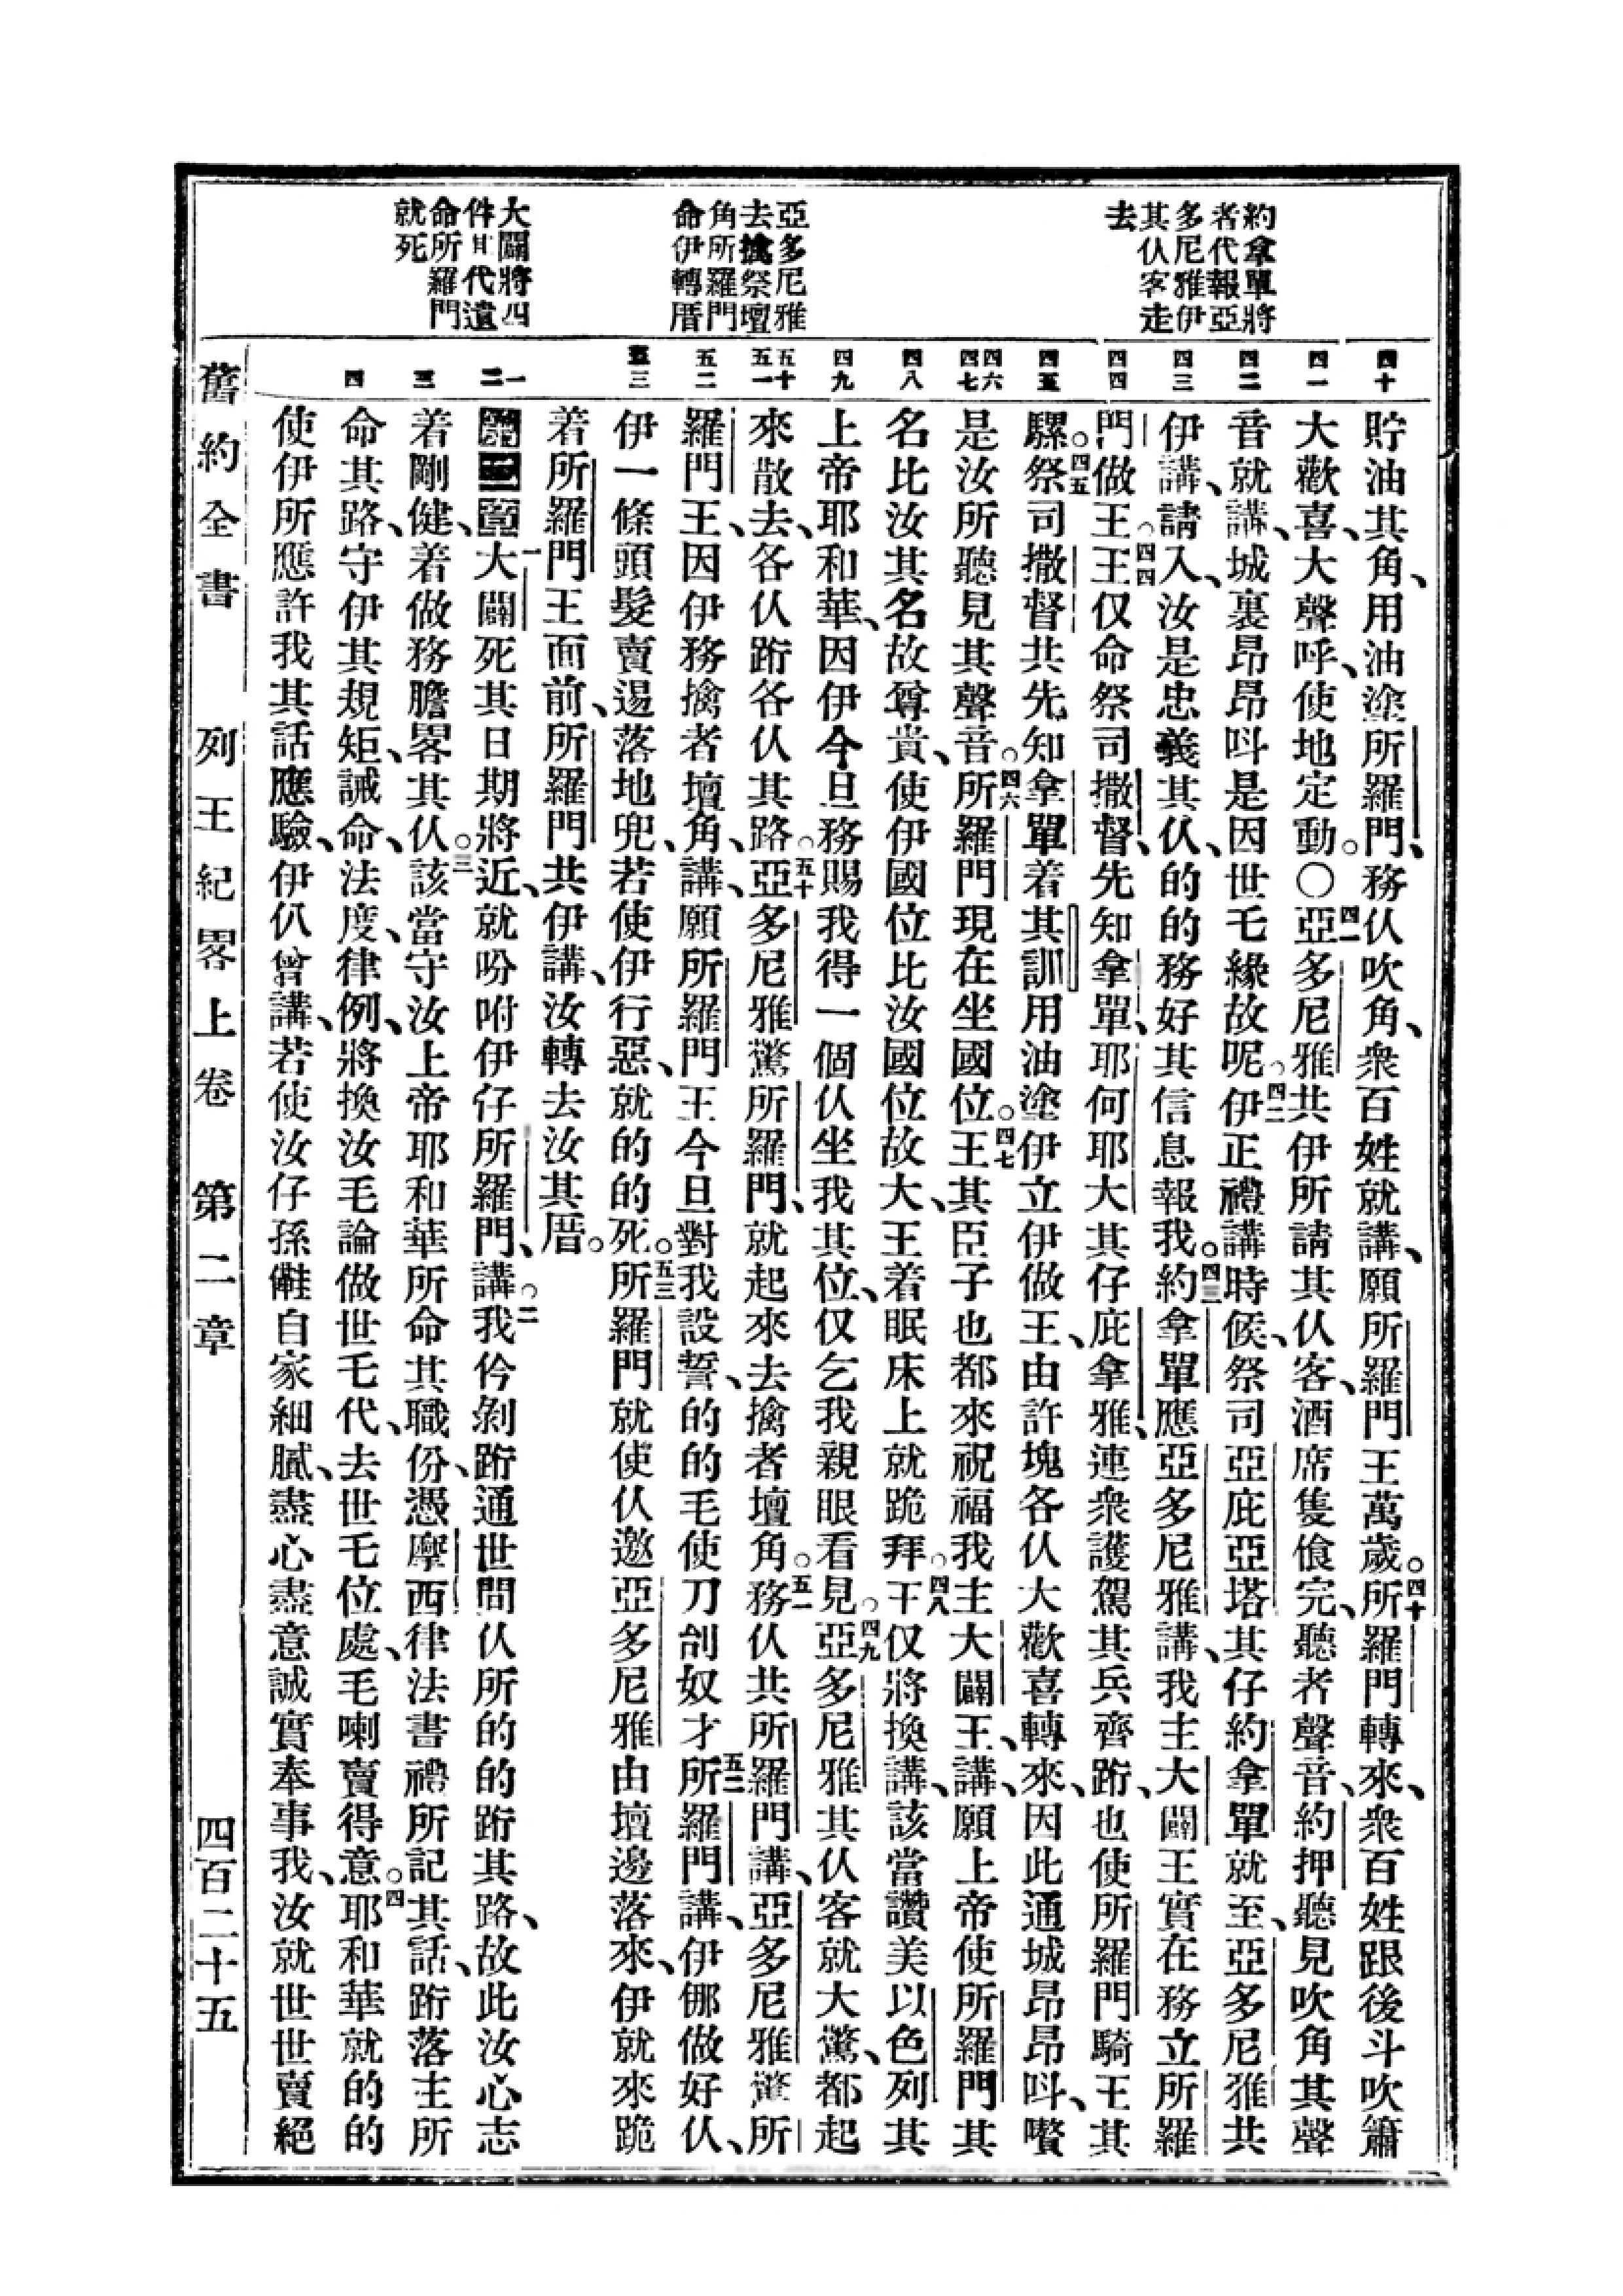 約拿單將
者代報亞
多尼雅伊
其仈客走
去
亞多尼雅
去擒祭壇
角所羅門
命伊轉厝
大闢將四
件㆙代遺
命所羅門
就死
四十
四一
四二
四三
四四
四五
四六
四七
四八
四九
五十
五一
五二
五三
一
二
三
四
貯油其角、用油塗所羅門、務仈吹角、衆百姓就講、願所羅門王萬歲。四十所羅門轉來、衆百姓跟後斗吹簫
大歡喜、大聲呼、使地定動。〇四一亞多尼雅共伊所請其仈客、酒席隻飡完、聽者聲音、約押聽見吹角其聲
音就講、城裏昂昂呌是因世乇緣故呢。四二伊正禮講時候、祭司亞庇亞塔其仔約拿單就至、亞多尼雅共
伊講、請入、汝是忠義其仈、的的務好其信息報我。四三約拿單應亞多尼雅講、我主大闢王實在務立所羅
門做王。四四王仅命祭司撒督、先知拿單、耶何耶大其仔庇拿雅、連衆護駕其兵齊跲、也使所羅門騎王其
騾。四五祭司撒督共先知拿單着其訓用油塗伊立伊做王、由許塊各仈大歡喜轉來、因此通城昂昂呌、嚽
是汝所聽見其聲音。四六所羅門現在坐國位。四七王其臣子也都來祝福我主大闢王、講、願上帝使所羅門其
名比汝其名故尊貴、使伊國位比汝國位故大、王着眠床上就跪拜。四八王仅將換講、該當讚美以色列其
上帝耶和華、因伊今旦務賜我得一個仈坐我其位、仅乞我親眼看見。四九亞多尼雅其仈客就大驚、都起
來散去、各仈跲各仈其路。五十亞多尼雅驚所羅門、就起來去擒者壇角。五一務仈共所羅門講、亞多尼雅驚所
羅門王、因伊務擒者壇角、講、願所羅門王今旦對我設誓、的的毛使刀刣奴才。五二所羅門講、伊那做好仈、
伊一條頭髮賣逿落地兜、若使伊行惡、就的的死。五三所羅門就使仈邀亞多尼雅由壇邊落來、伊就來跪
着所羅門王面前、所羅門共伊講、汝轉去汝其厝。
第二章一大闢死其日期將近、就吩咐伊仔所羅門、講。二我仱剝跲通世間仈所的的跲其路、故此汝心志
着剛健、着做務膽畧其仈。三該當守汝上帝耶和華所命其職份、憑摩西律法書禮所記其話、跲落主所
命其路、守伊其規矩、誡命、法度、律例、將換汝毛論做世乇代、去世乇位處、毛喇賣得意。四耶和華就的的
使伊所應許我其話應驗、伊仈曾講、若使汝仔孫儺自家細膩、盡心盡意誠實奉事我、汝就世世賣絕
舊約全書 列王紀畧上卷 第二章 四百二十五